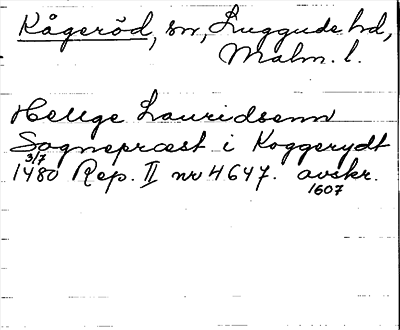 Kågeröd, sn, Luggude hd,
Malm. l.
Helge Lauridsenn
Sognepræst i Koggerydt
3/7
1480 Rep. II nr 4647. avskr.
1607